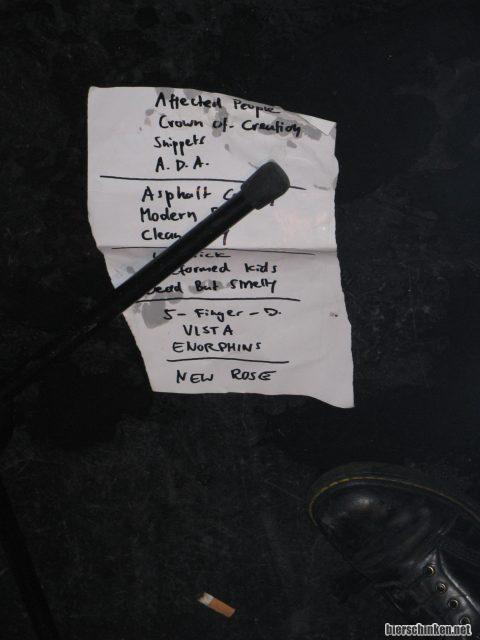 Affected People
Crown of Creation
Snippets
A.D.A.
Asphalt
Modern
Clean
Deformed Kids
Dead But Smelly
5-Finger-D.
VISTA
ENORPHINS
NEW ROSE
bierschinken.net